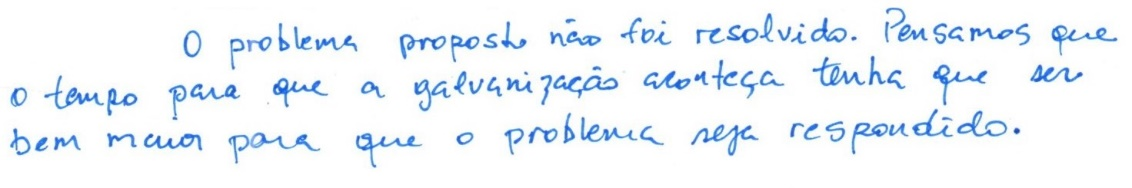 O problema proposto não foi resolvido. Pensamos que
o tempo para que a galvanização aconteça tenha que ser
bem maior para que o problema seja respondido.